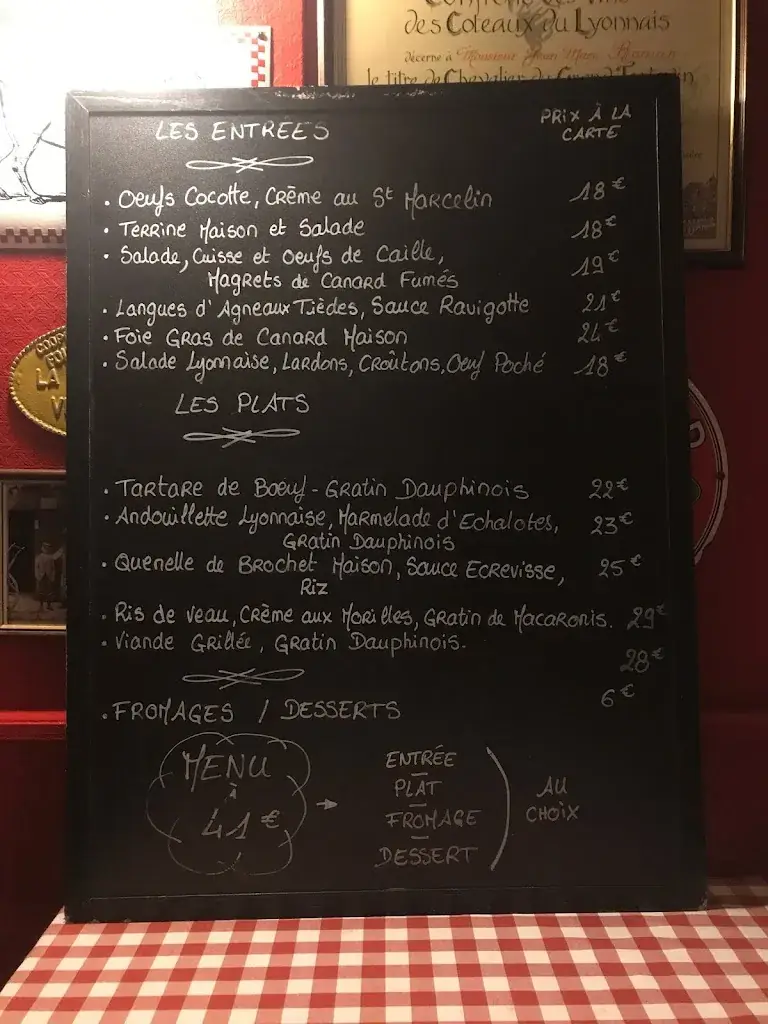 des Coteaux du Lyonnais
décerne à Monsieur Jean Marc
le titre de Chevalier du
LES ENTREES
PRIX À LA
CARTE
. Oeufs Cocotte, Crème au St Marcelin 18€
. Terrine Maison et Salade 18€
. Salade, Cuisse et Oeufs de Caille,
Magrets de Canard Fumés 19€
. Langues d'Agneaux Tièdes, Sauce Ravigotte 21€
. Foie Gras de Canard Maison 24€
. Salade Lyonnaise, Lardons, Croûtons, Oeuf Poché 18€
LES PLATS
. Tartare de Boeuf - Gratin Dauphinois 22€
. Andouillette Lyonnaise, Marmelade d'Echalotes, 23€
Gratin Dauphinois
. Quenelle de Brochet Maison, Sauce Ecrevisse, 25€
Riz
. Ris de veau, Crème aux Morilles, Gratin de Macaronis. 29€
. Viande Grillée, Gratin Dauphinois.
28€
. FROMAGES / DESSERTS 6€
MENU
à
41€
ENTRÉE
PLAT
FROMAGE
DESSERT
AU
CHOIX